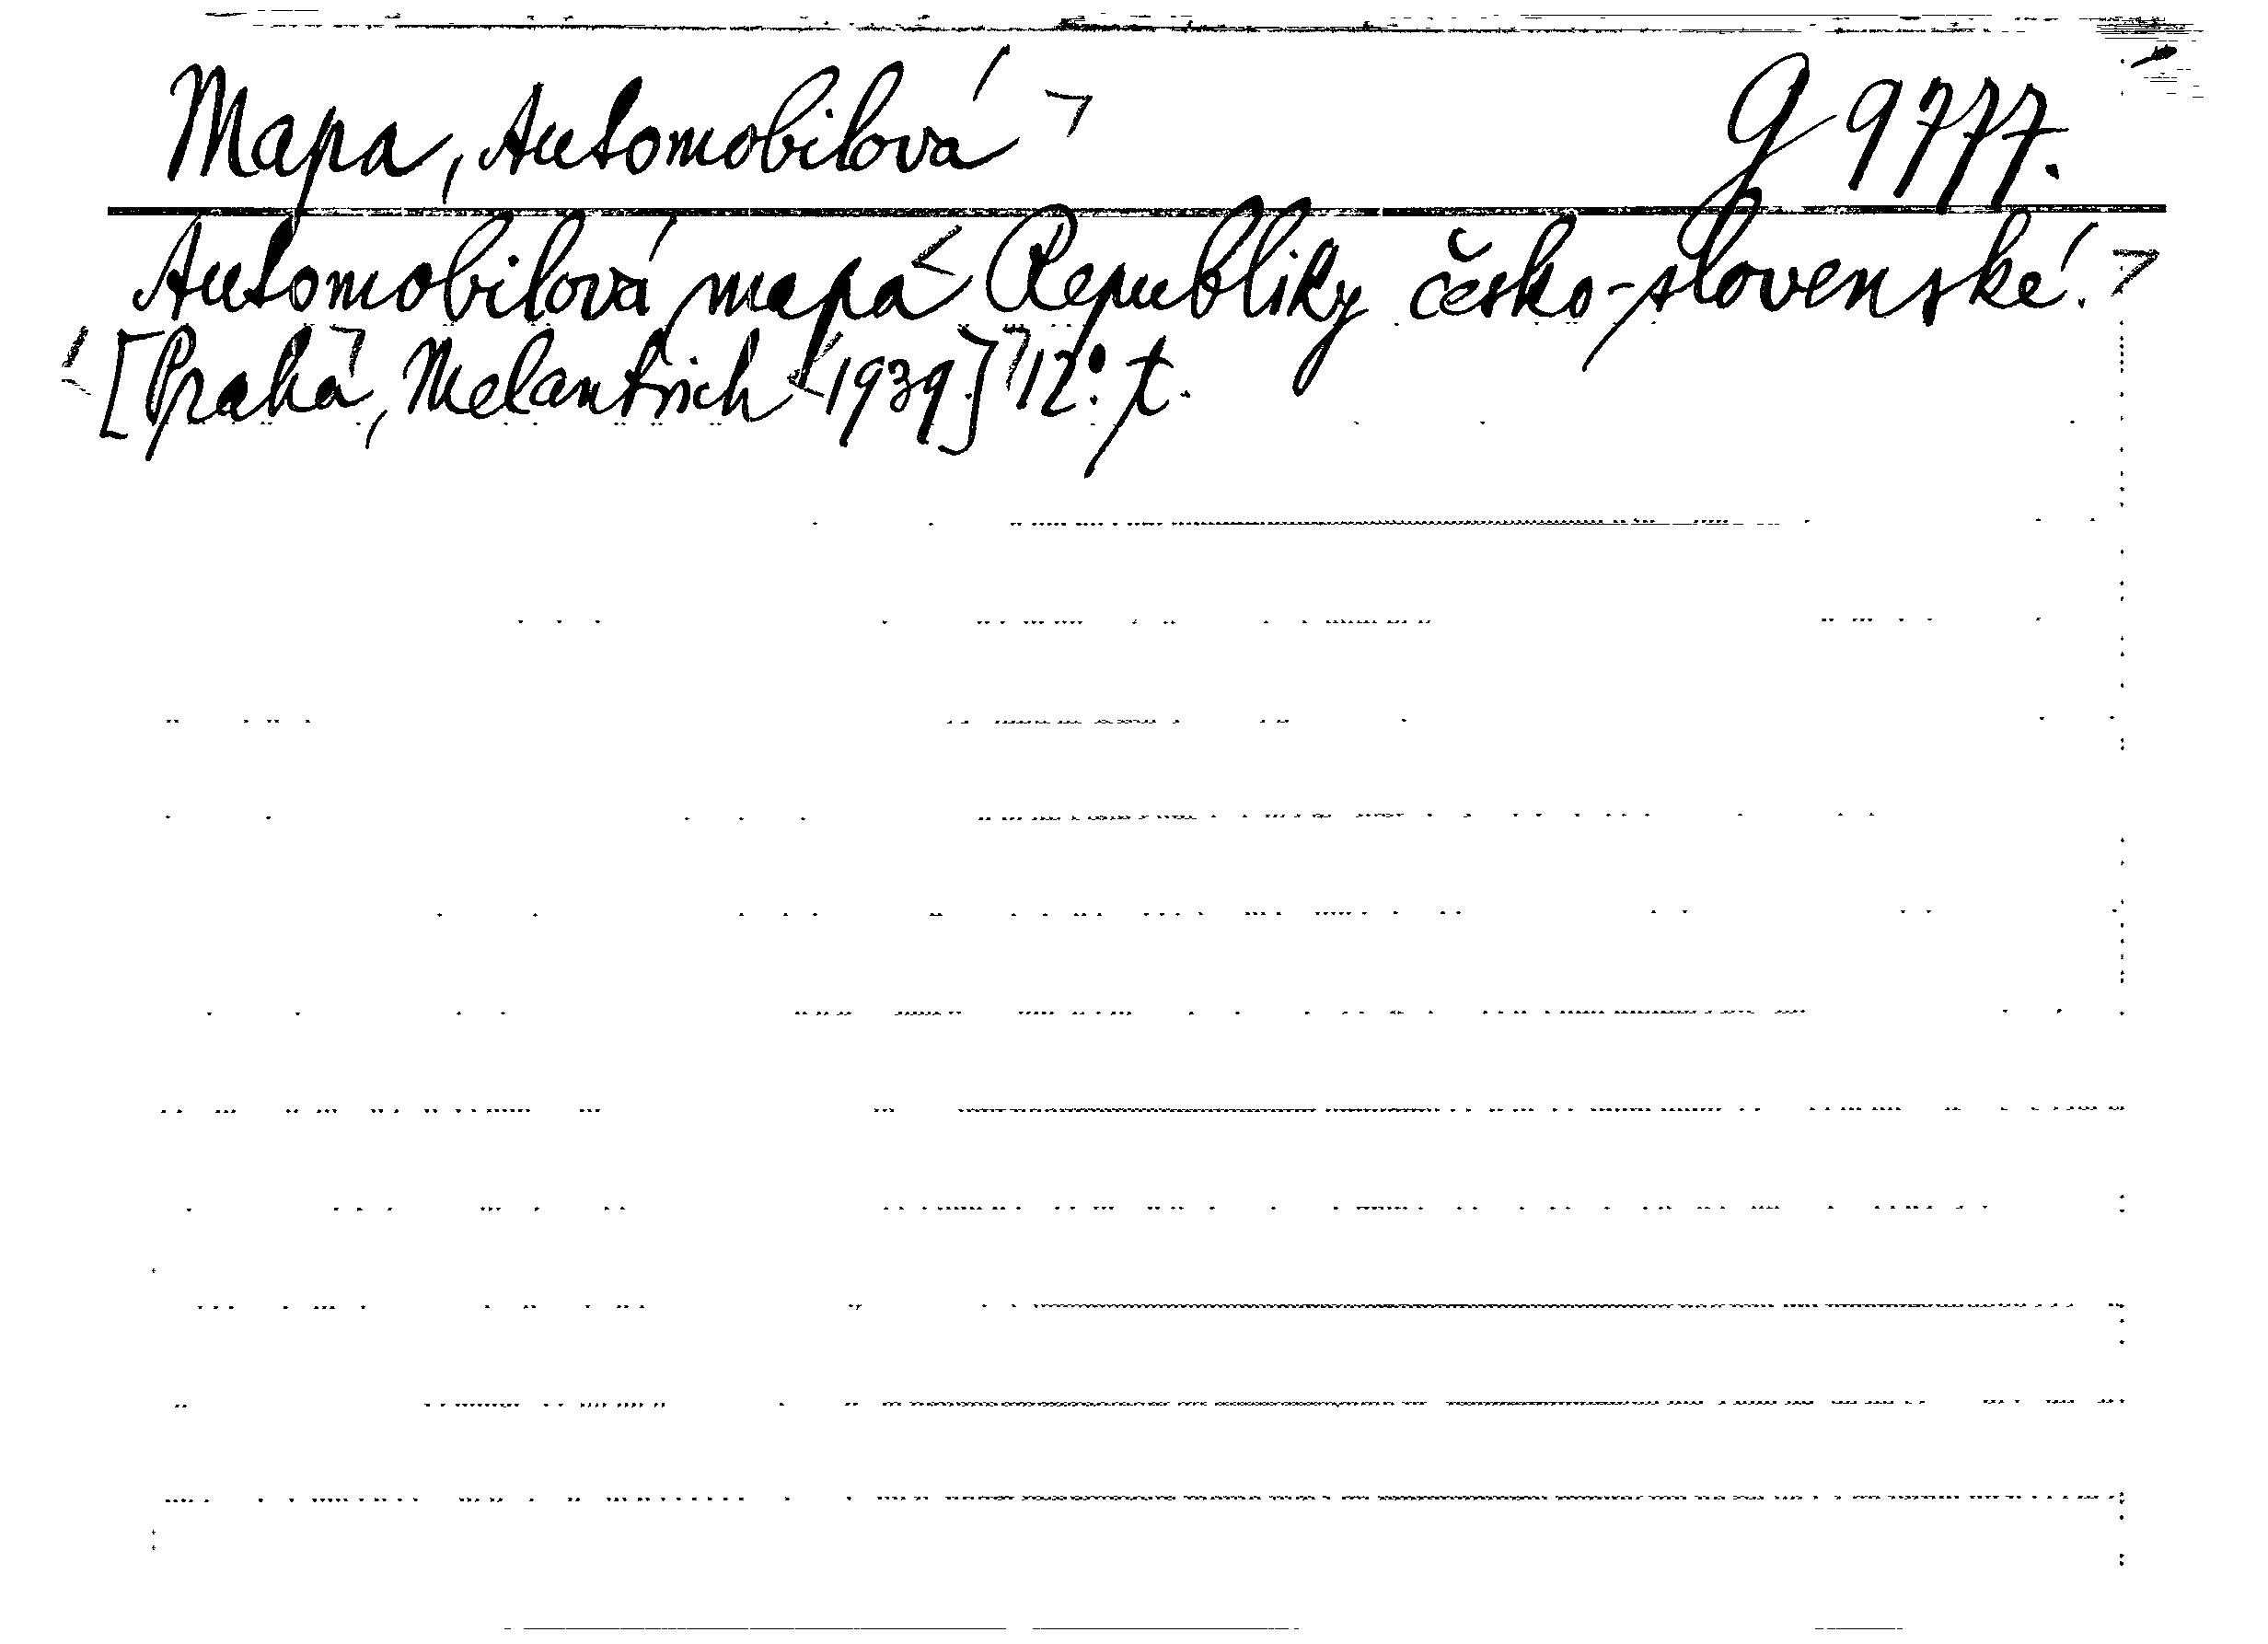 Mapa, Automobilová G 9777.
Automobilová mapa Republiky česko-slovenské.
[Praha, Melantrich 1939.] 12°. t.